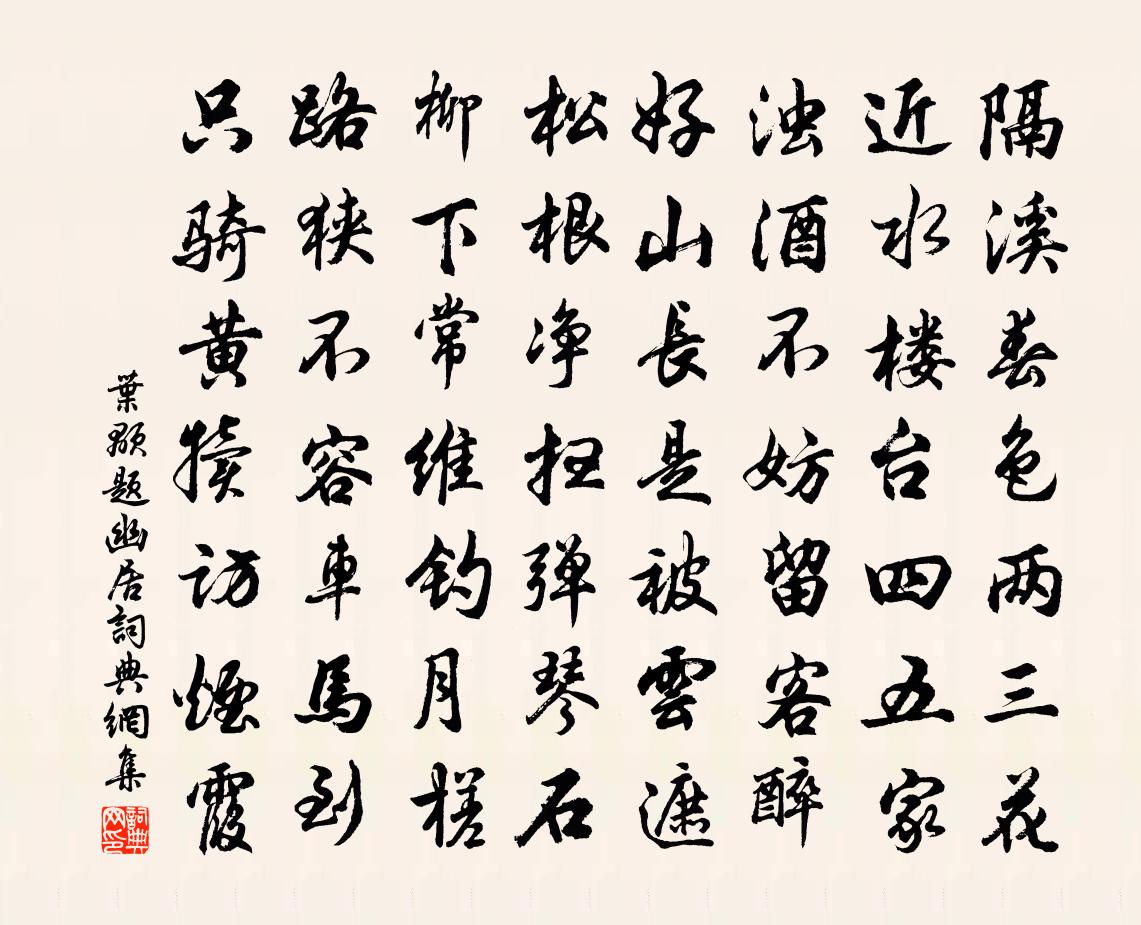 隔溪春色两三花
近水楼台四五家
浊酒不妨留客醉
好山長是被雲遮
松根净扫弹琴石
柳下常维钓月槎
路狭不容車馬到
只骑黄犊访烟霞
葉颙题幽居詞典網集
詞典网印